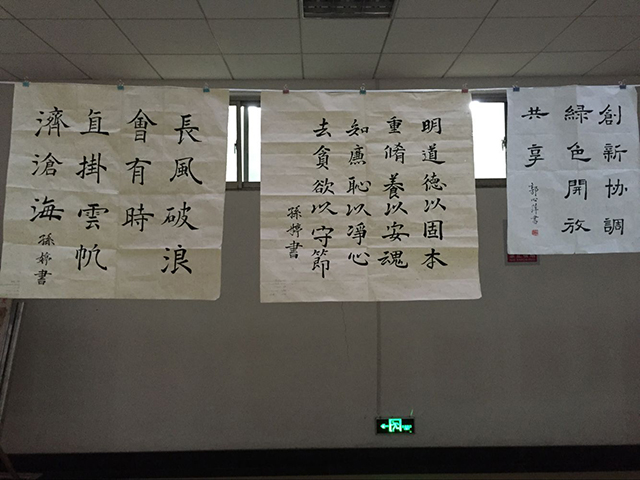 長風破浪
會有時
直掛雲帆
濟滄海
孫婷書
明道德以固本
重脩養以安魂
知廉恥以淨心
去貪欲以守節
孫婷書
創新協調
綠色開放
共享